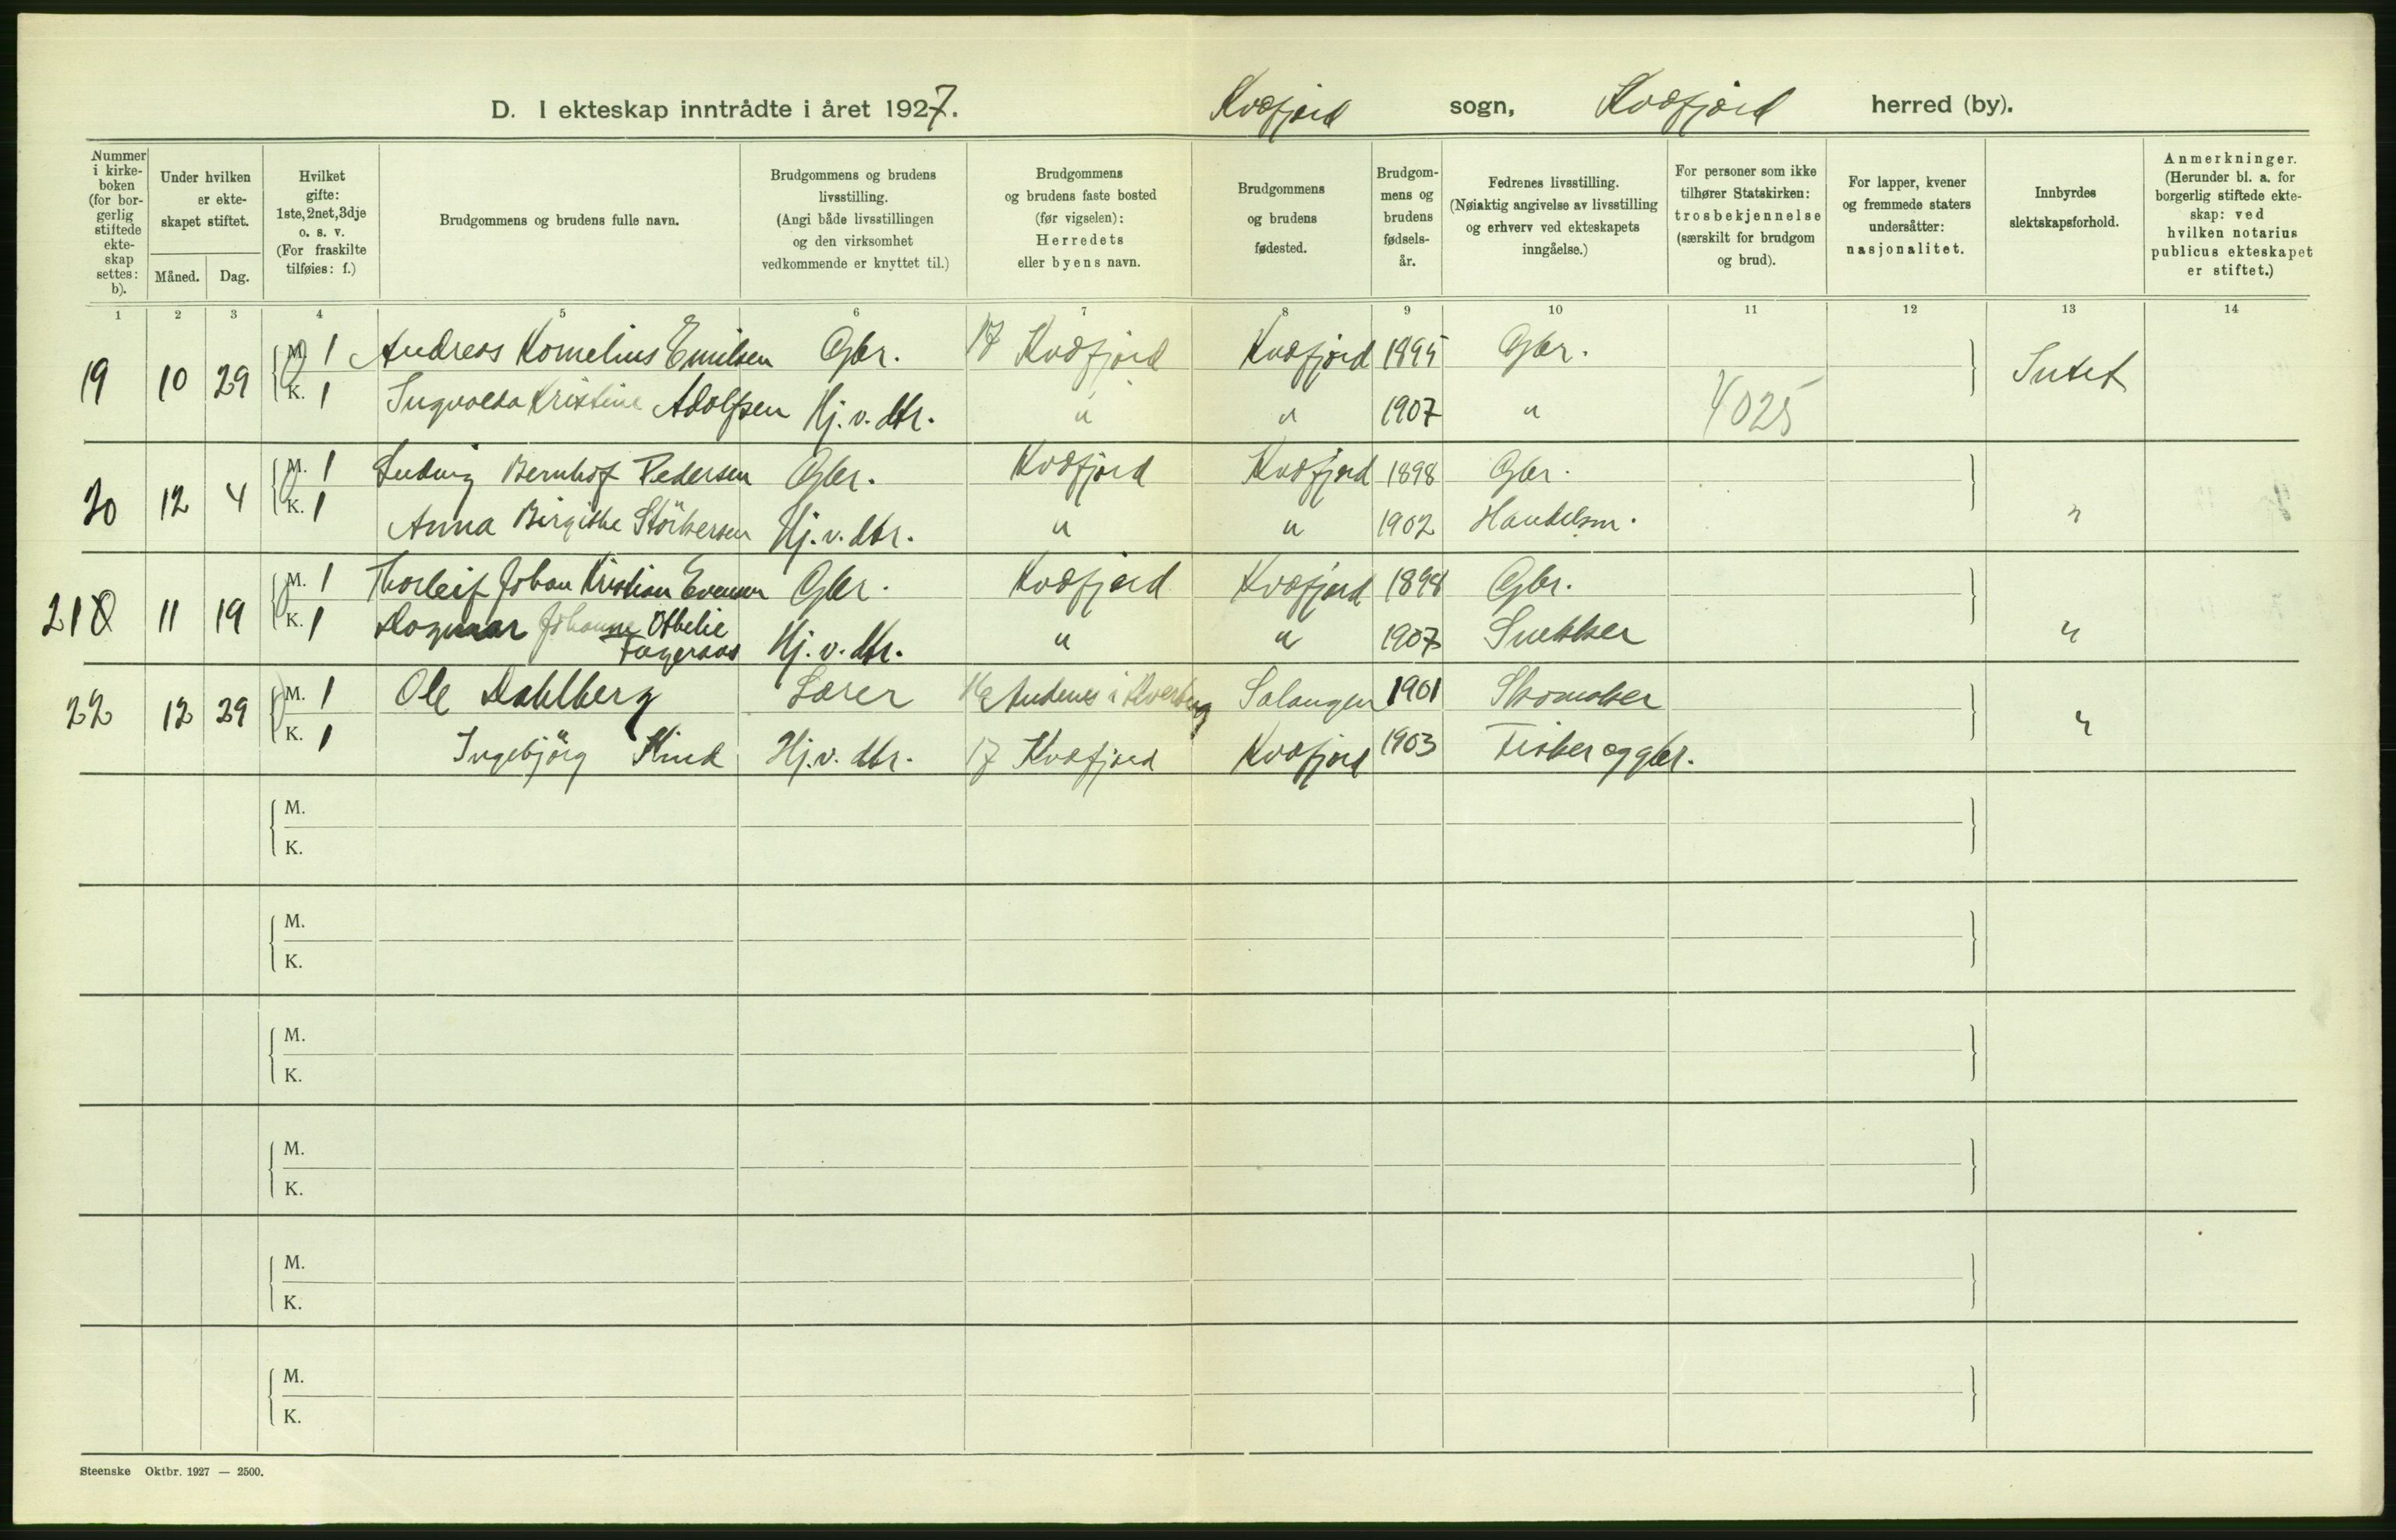 D. I ekteskap inntrådte i året 1927. Kvæfjord sogn, Kvæfjord herred (by).
Nummer i kirke- boken (for bor- gerlig stiftede ekte- skap settes: b).
Under hvilken er ekte- skapet stiftet.
Måned. Dag.
Hvilket gifte: 1ste, 2net, 3dje o. s. v. (For fraskilte tilføies: f.)
Brudgommens og brudens fulle navn.
Brudgommens og brudens livsstilling. (Angi både livsstillingen og den virksomhet vedkommende er knyttet til.)
Brudgommens og brudens faste bosted (før vigselen): Herredets eller byens navn.
Brudgommens og brudens fødested.
Brudgom- mens og brudens fødsels- år.
Fedrenes livsstilling. (Nøiaktig angivelse av livsstilling og erhverv ved ekteskapets inngåelse.)
For personer som ikke tilhører Statskirken: trosbekjennelse (særskilt for brudgom og brud).
For lapper, kvener og fremmede staters undersåtter: nasjonalitet.
Innbyrdes slektskapsforhold.
Anmerkninger. (Herunder bl. a. for borgerlig stiftede ekte- skap: ved hvilken notarius publicus ekteskapet er stiftet.)
1 2 3 4 5 6 7 8 9 10 11 12 13 14
19 10 29 M. 1 Andreas Kornelius Emilsen Gbr. 17 Kvæfjord Kvæfjord 1895 Gbr. Intet
K. 1 Ingvalda Kristine Adolfsen Hj. v. dtr. " " 1907 " 4025
20 12 4 M. 1 Ludvig Bernhof Pedersen Gbr. Kvæfjord Kvæfjord 1898 Gbr. "
K. 1 Anna Birgitte Störkersen Hj. v. dtr. " " 1902 Handelsm.
21 11 19 M. 1 Thorleif Johan Kristian Evensen Gbr. Kvæfjord Kvæfjord 1898 Gbr. "
K. 1 Dagmar Johanne Othelie
Fageraas Hj. v. dtr. " " 1907 Snekker
22 12 29 M. 1 Ole Dahlberg Lærer Andenes i Salangen 1901 Skomaker "
K. 1 Ingebjörg Kind Hj. v. dtr. 17 Kvæfjord Kvæfjord 1903 Fisker og gbr.
M.
K.
M.
K.
M.
K.
M.
K.
M.
K.
M.
K.
Steenske Oktbr. 1927 — 2500.